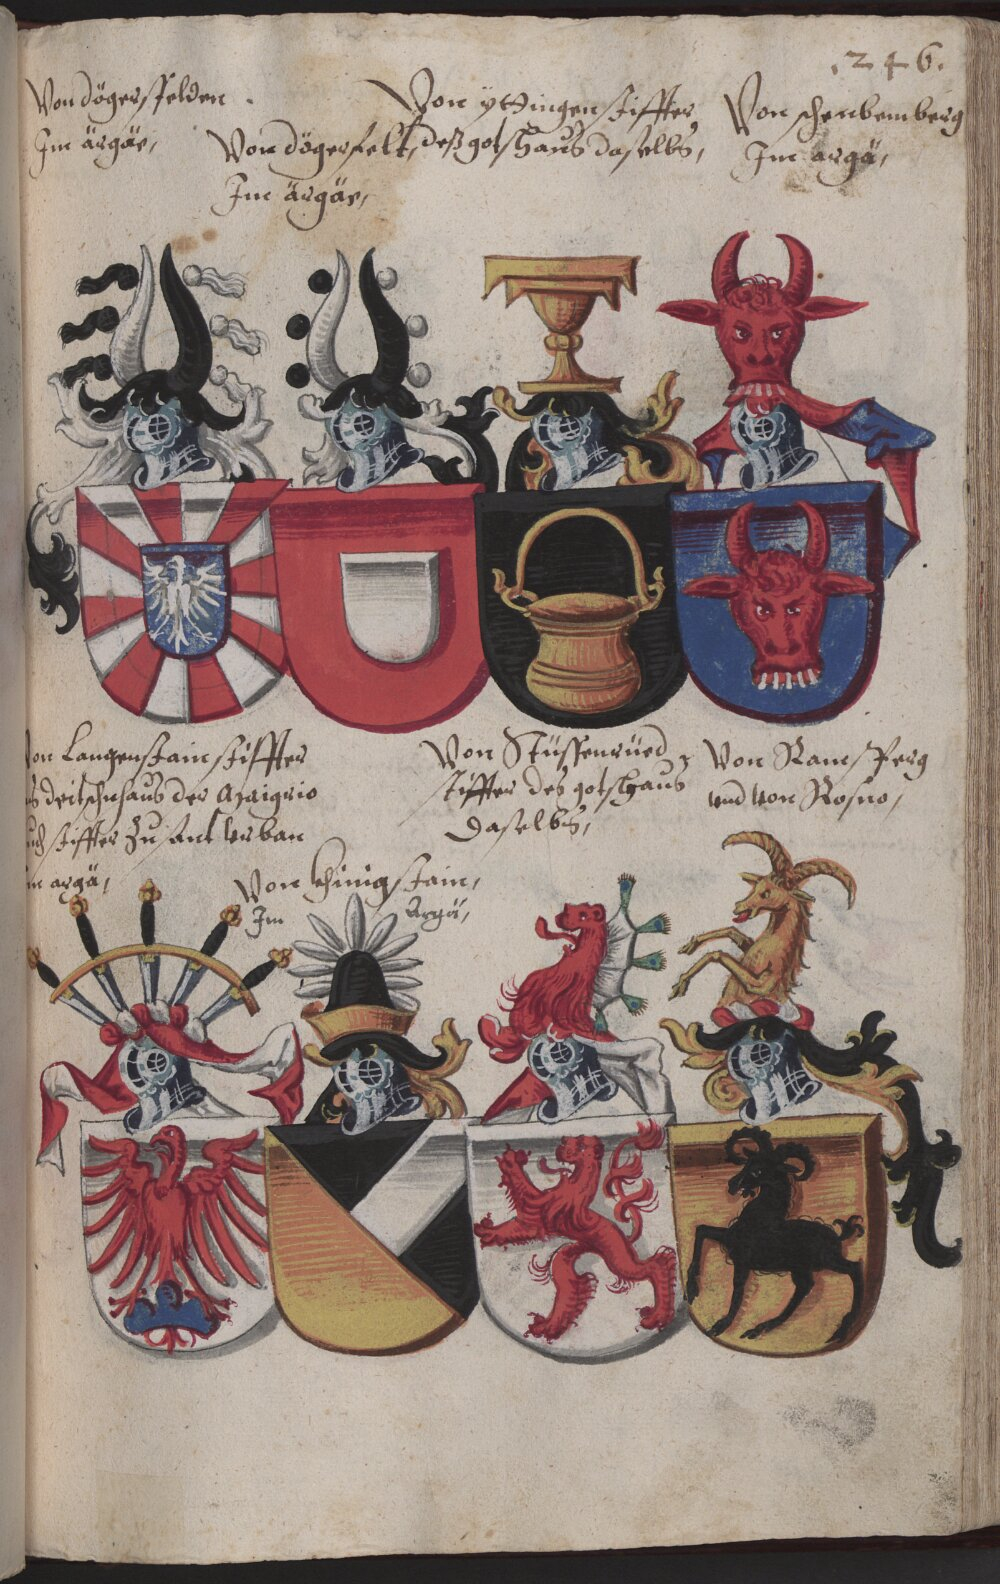 .246.
Von dögersfelden.
Im ärgäe,
Von dögersfelt,
Im ärgäe,
Von ÿttingen stiffter
deß gotshaus daselbs,
Von schenbemberg
Im argä,
von Langenstain stiffter
deitschnhaus der
stiffter zu sant Urban
argä,
Von khünigstain,
Im Argä,
Von Rüssenrüed,
stiffter des gotshaus
daselbs,
Von Ramsperg
und von Rosno,